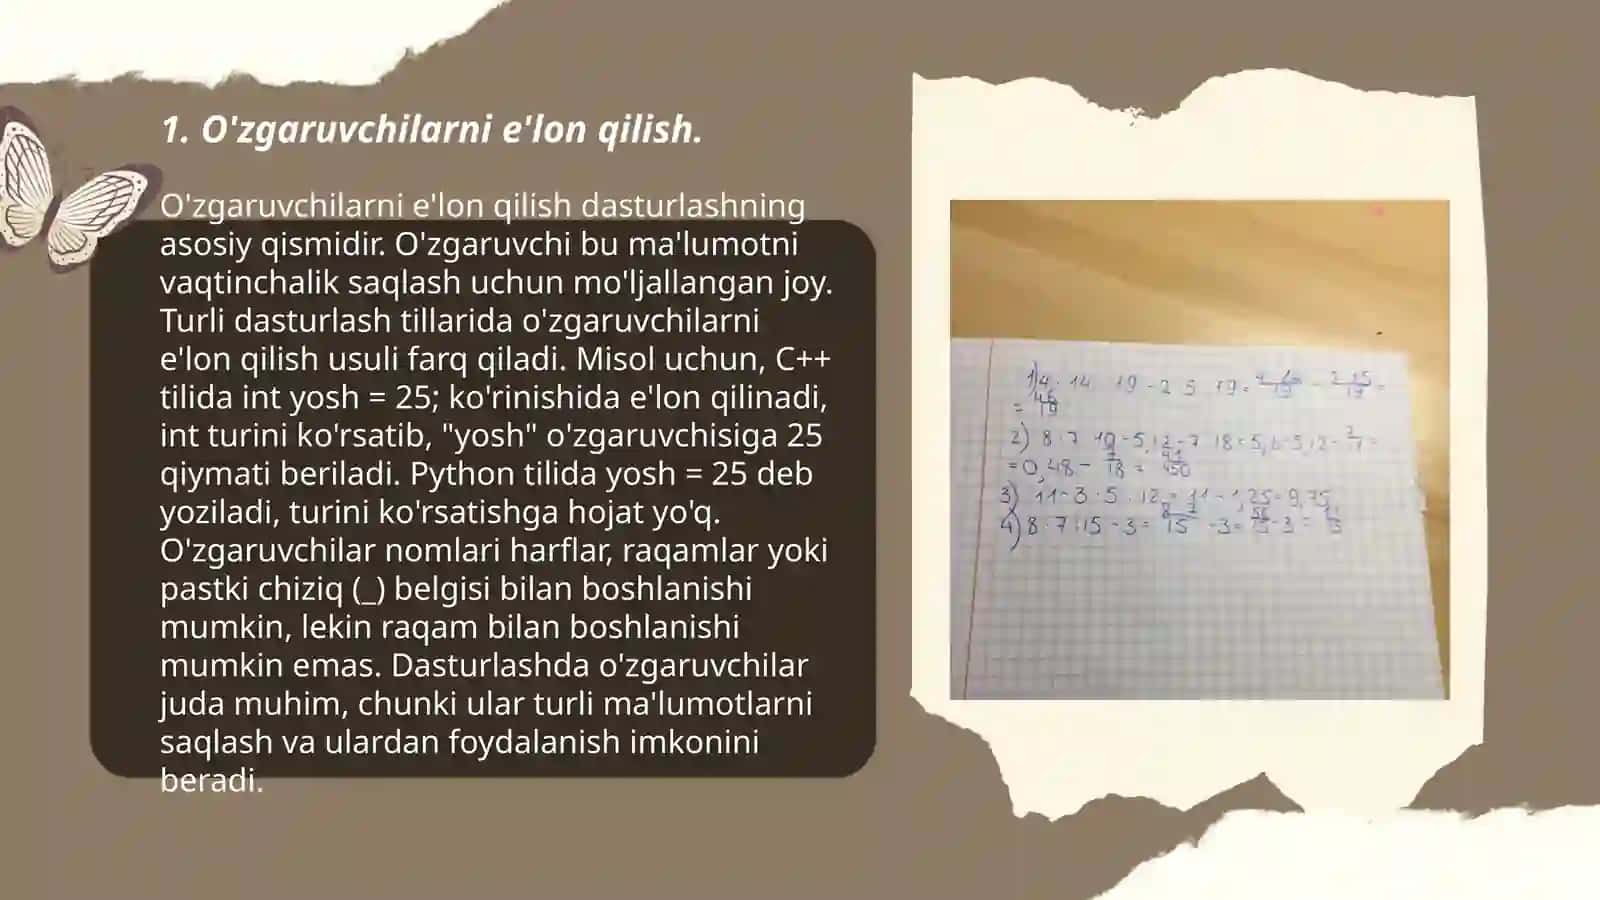 1. O'zgaruvchilarni e'lon qilish.
O'zgaruvchilarni e'lon qilish dasturlashning
asosiy qismidir. O'zgaruvchi bu ma'lumotni
vaqtinchalik saqlash uchun mo'ljallangan joy.
Turli dasturlash tillarida o'zgaruvchilarni
e'lon qilish usuli farq qiladi. Misol uchun, C++
tilida int yosh = 25; ko'rinishida e'lon qilinadi,
int turini ko'rsatib, "yosh" o'zgaruvchisiga 25
qiymati beriladi. Python tilida yosh = 25 deb
yoziladi, turini ko'rsatishga hojat yo'q.
O'zgaruvchilar nomlari harflar, raqamlar yoki
pastki chiziq (_) belgisi bilan boshlanishi
mumkin, lekin raqam bilan boshlanishi
mumkin emas. Dasturlashda o'zgaruvchilar
juda muhim, chunki ular turli ma'lumotlarni
saqlash va ulardan foydalanish imkonini
beradi.
3) 11-3·5:12= 11-1,25=9,75
4) 8·7:15-3=